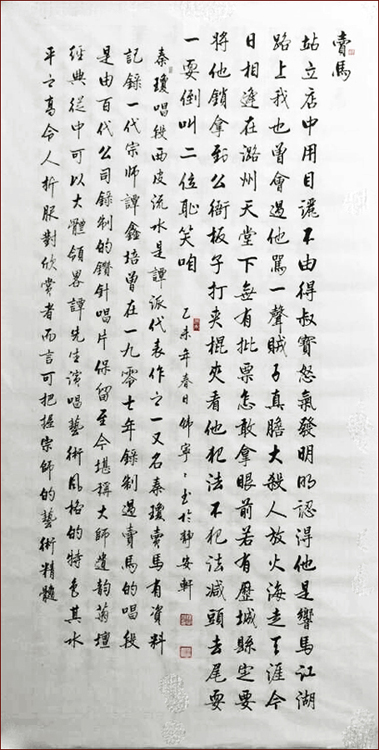 賣馬
站立店中用目灑不由得叔寶怒氣發明明認得他是響馬江湖
路上我也曾會過他罵一聲賊子真膽大殺人放火海走天涯今
日相逢在潞州天堂下無有批票怎敢拿眼前若有歷城縣定要
將他鎖拿到公衙板子打夾棍夾看他犯法不犯法減頭去尾要
一耍倒叫二位恥笑咱
乙未年春日佛寧書於靜安軒
秦瓊唱段西皮流水是譚派代表作之一又名秦瓊賣馬有資料
記錄一代宗師譚鑫培曾在一九零七年錄制過賣馬的唱段
是由百代公司錄制的鑽針唱片保留至今堪稱大師遺韵菊壇
經典從中可以大體領略譚先生演唱藝術風格的特色其水
平之高令人折服對欣賞者而言可把握宗師的藝術精髓